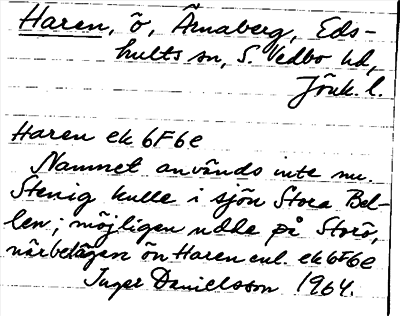 Haren, ö, Ärnaberg, Eds-
hults sn, S. Vedbo hd,
Jönk. l.
Haren ek 6F6e
Namnet används inte nu.
Stenig kulle i sjön Stora Bel-
len; möjligen udde på Storö,
närbelägen ön Haren enl. ek 6F6e
Inger Danielsson 1964.